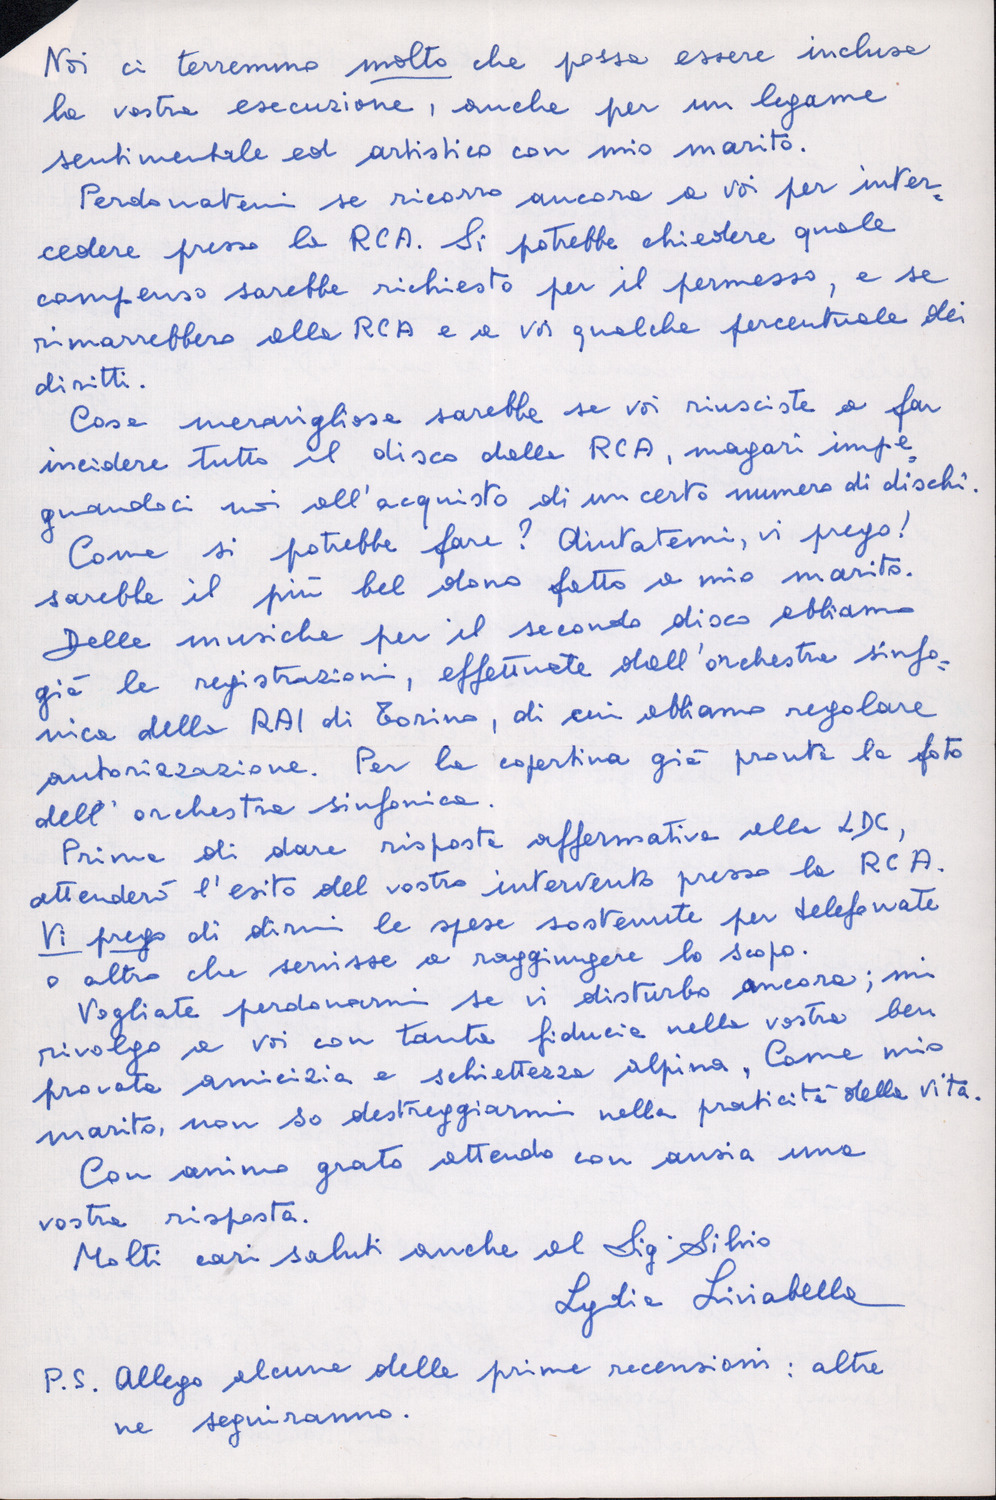 Noi ci terremmo molto che possa essere inclusa
la vostra esecuzione, anche per un legame
sentimentale ed artistico con mio marito.
Perdonatemi se ricorro ancora a voi per inter=
cedere presso la RCA. Si potrebbe chiedere quale
compenso sarebbe richiesto per il permesso, e se
rimarrebbero alla RCA e a voi qualche percentuale dei
diritti.
Cosa meravigliosa sarebbe se voi riusciste a far
incidere tutto il disco dalla RCA, magari impe=
gnandoci noi all'acquisto di un certo numero di dischi.
Come si potrebbe fare? Aiutatemi, vi prego!
sarebbe il più bel dono fatto a mio marito.
Delle musiche per il secondo disco abbiamo
già le registrazioni, effettuate dall'orchestra sinfo=
nica della RAI di Torino, di cui abbiamo regolare
autorizzazione. Per la copertina già pronta la foto
dell'orchestra sinfonica.
Prima di dare risposta affermativa alla LDC,
attenderò l'esito del vostro intervento presso la RCA.
Vi prego di dirmi le spese sostenute per telefonate
o altro che servisse a raggiungere lo scopo.
Vogliate perdonarmi se vi disturbo ancora; mi
rivolgo a voi con tanta fiducia nella vostra ben
provata amicizia e schiettezza alpina. Come mio
marito, non so destreggiarmi nella praticità della vita.
Con animo grato attendo con ansia una
vostra risposta.
Molti cari saluti anche al Sig. Silvio
Lydia Liviabella
P.S. Allego alcune delle prime recensioni: altre
ne seguiranno.